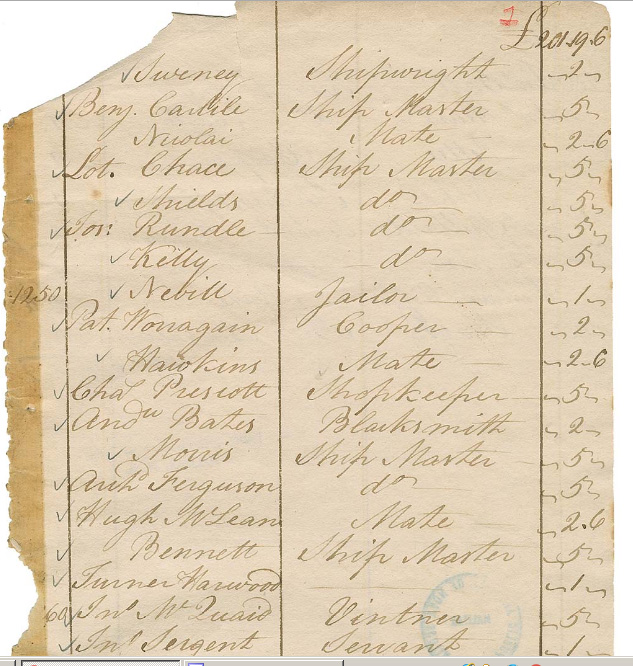 1
£201.19.6
Sweney Shipwright " 2 "
Benj. Carlile Ship Master " 5 "
Nicolai Mate " 2.6
Lot. Chace Ship Master " 5 "
Shields do " 5 "
Jos: Rundle do " 5 "
Kelly do " 5 "
1250 Nevill Jailor " 1 "
Pat. Worragain Cooper " 2 "
Hawkins Mate " 2.6
Chas Prescott Shopkeeper " 5 "
Andw Bates Blacksmith " 2 "
Morris Ship Master " 5 "
Archd Ferguson do " 5 "
Hugh McLean Mate " 2.6
Bennett Ship Master " 5 "
Turner Harwood " 1 "
60 Jno McQuaid Vintner " 5 "
Jno Sergent Servant " 1 "